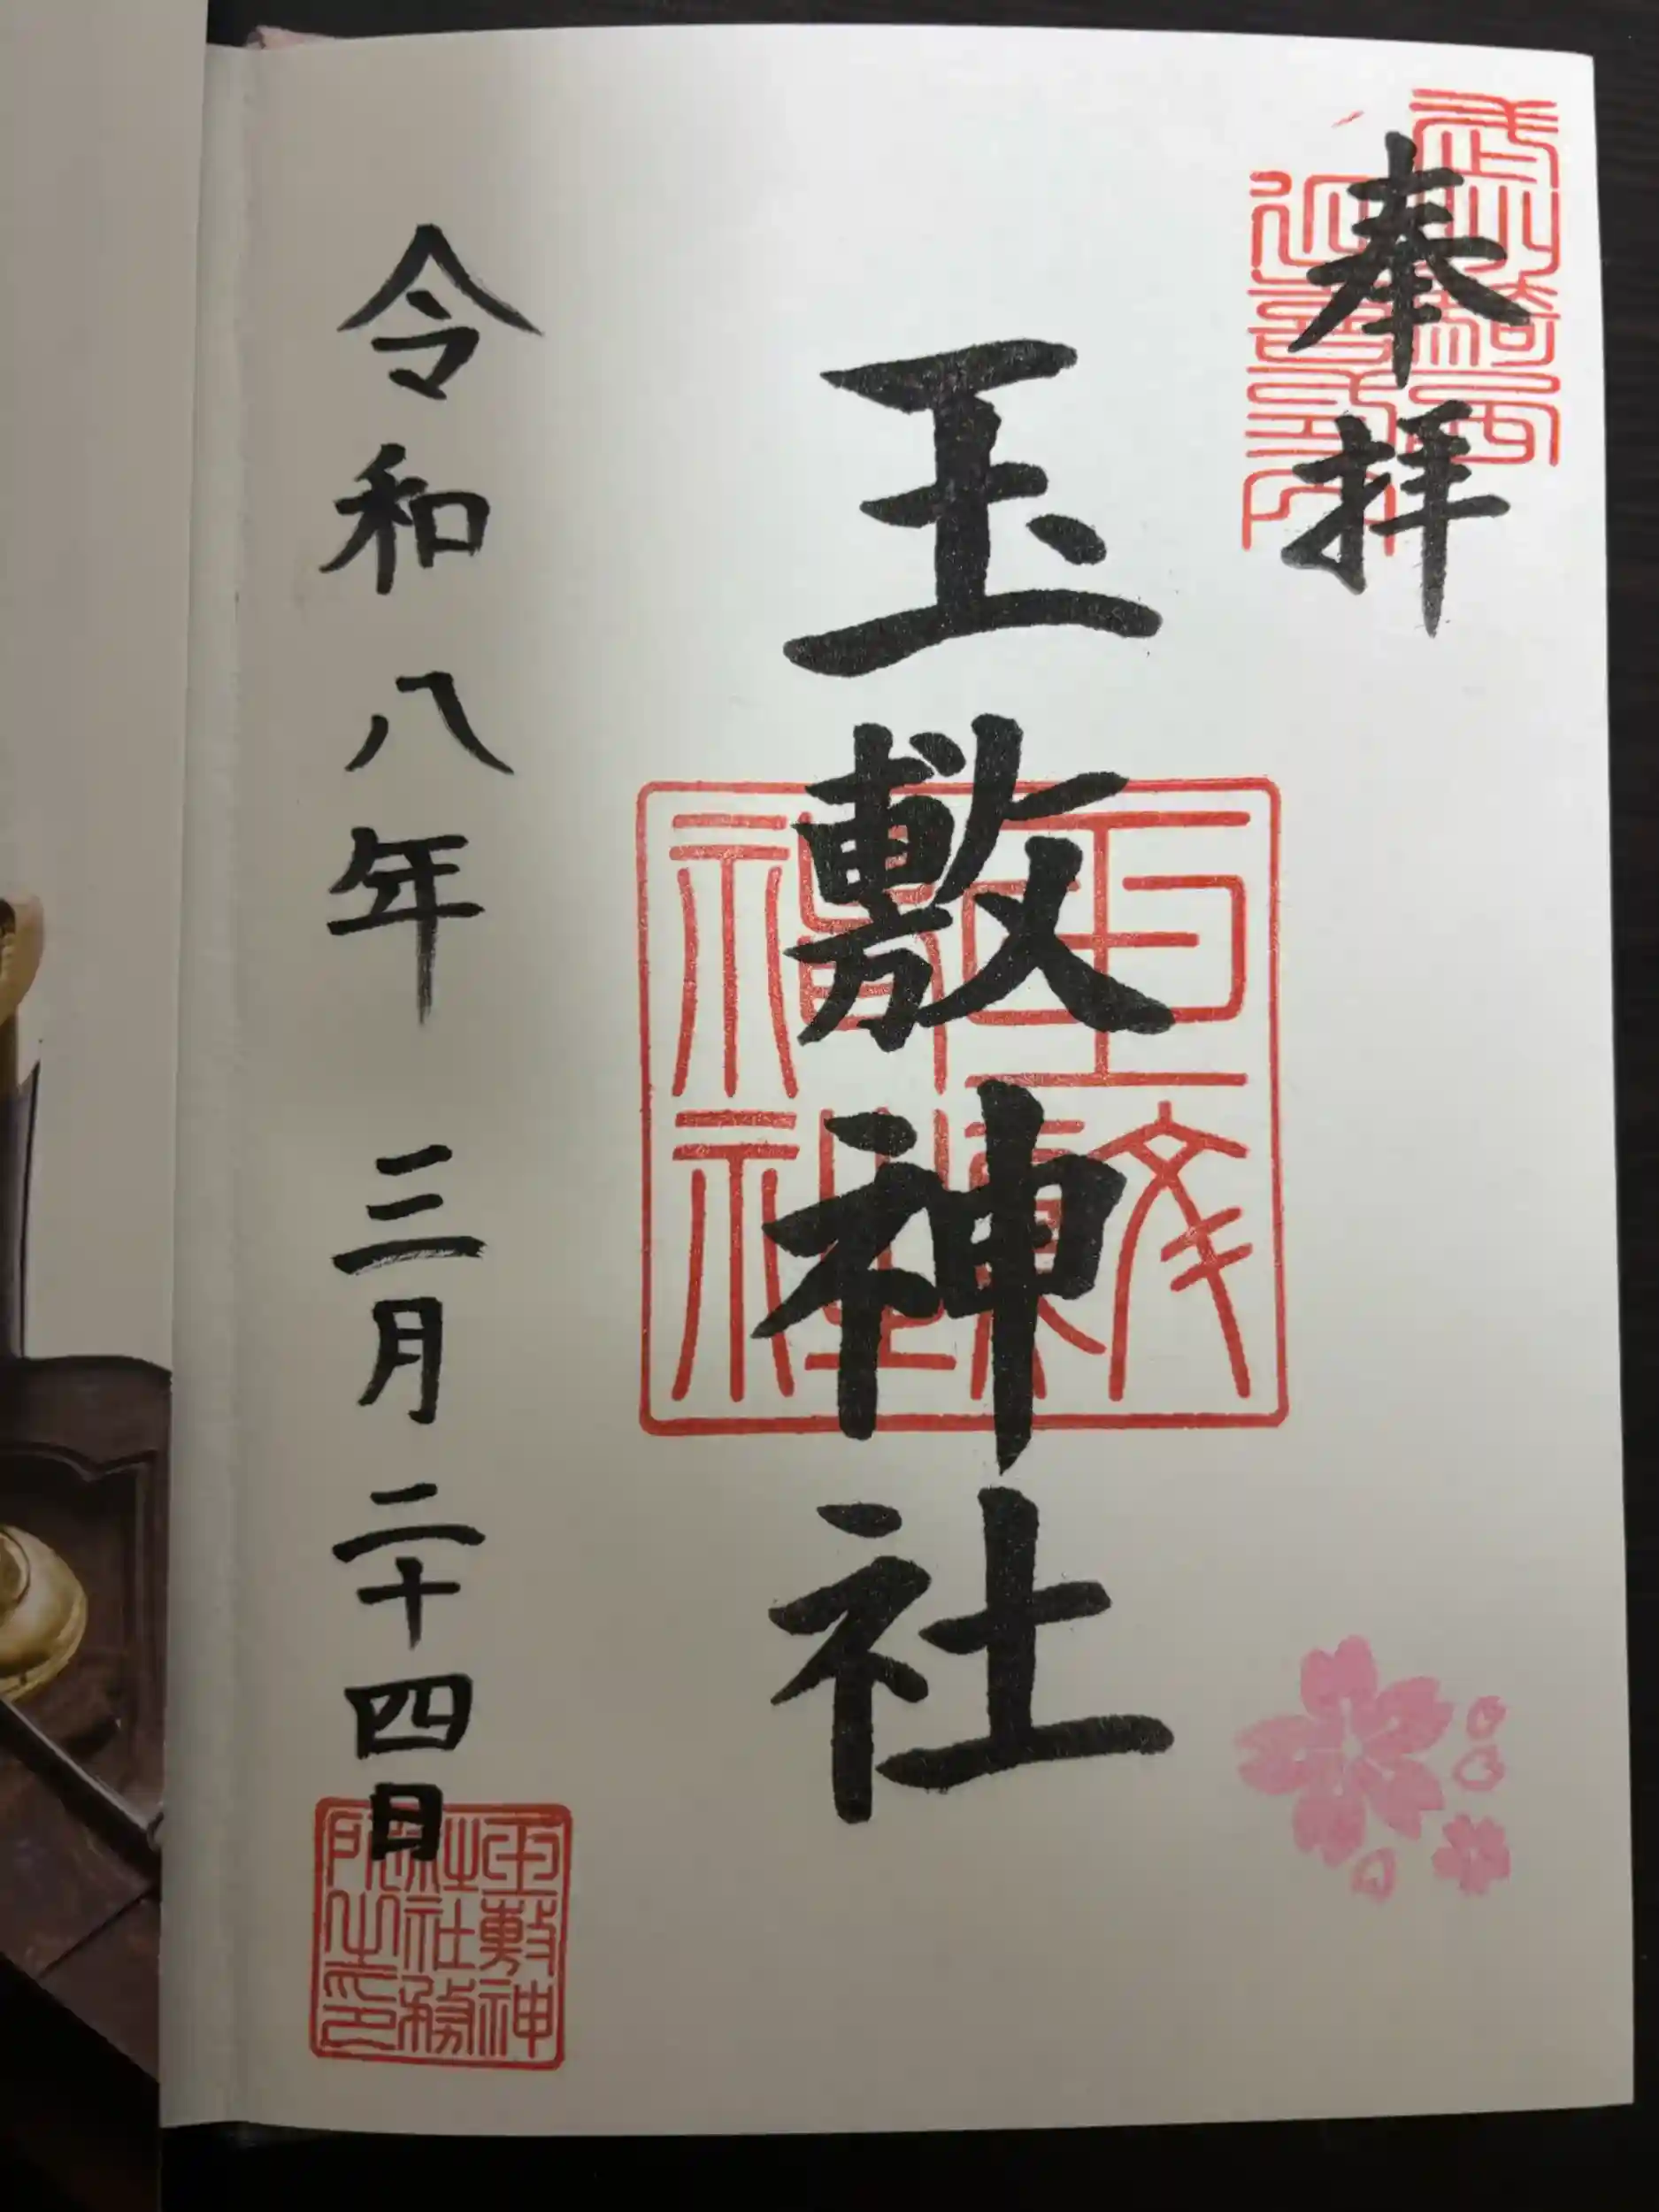 奉拝
玉敷神社
令和八年 三月二十四日
玉敷神
社社務
所之印